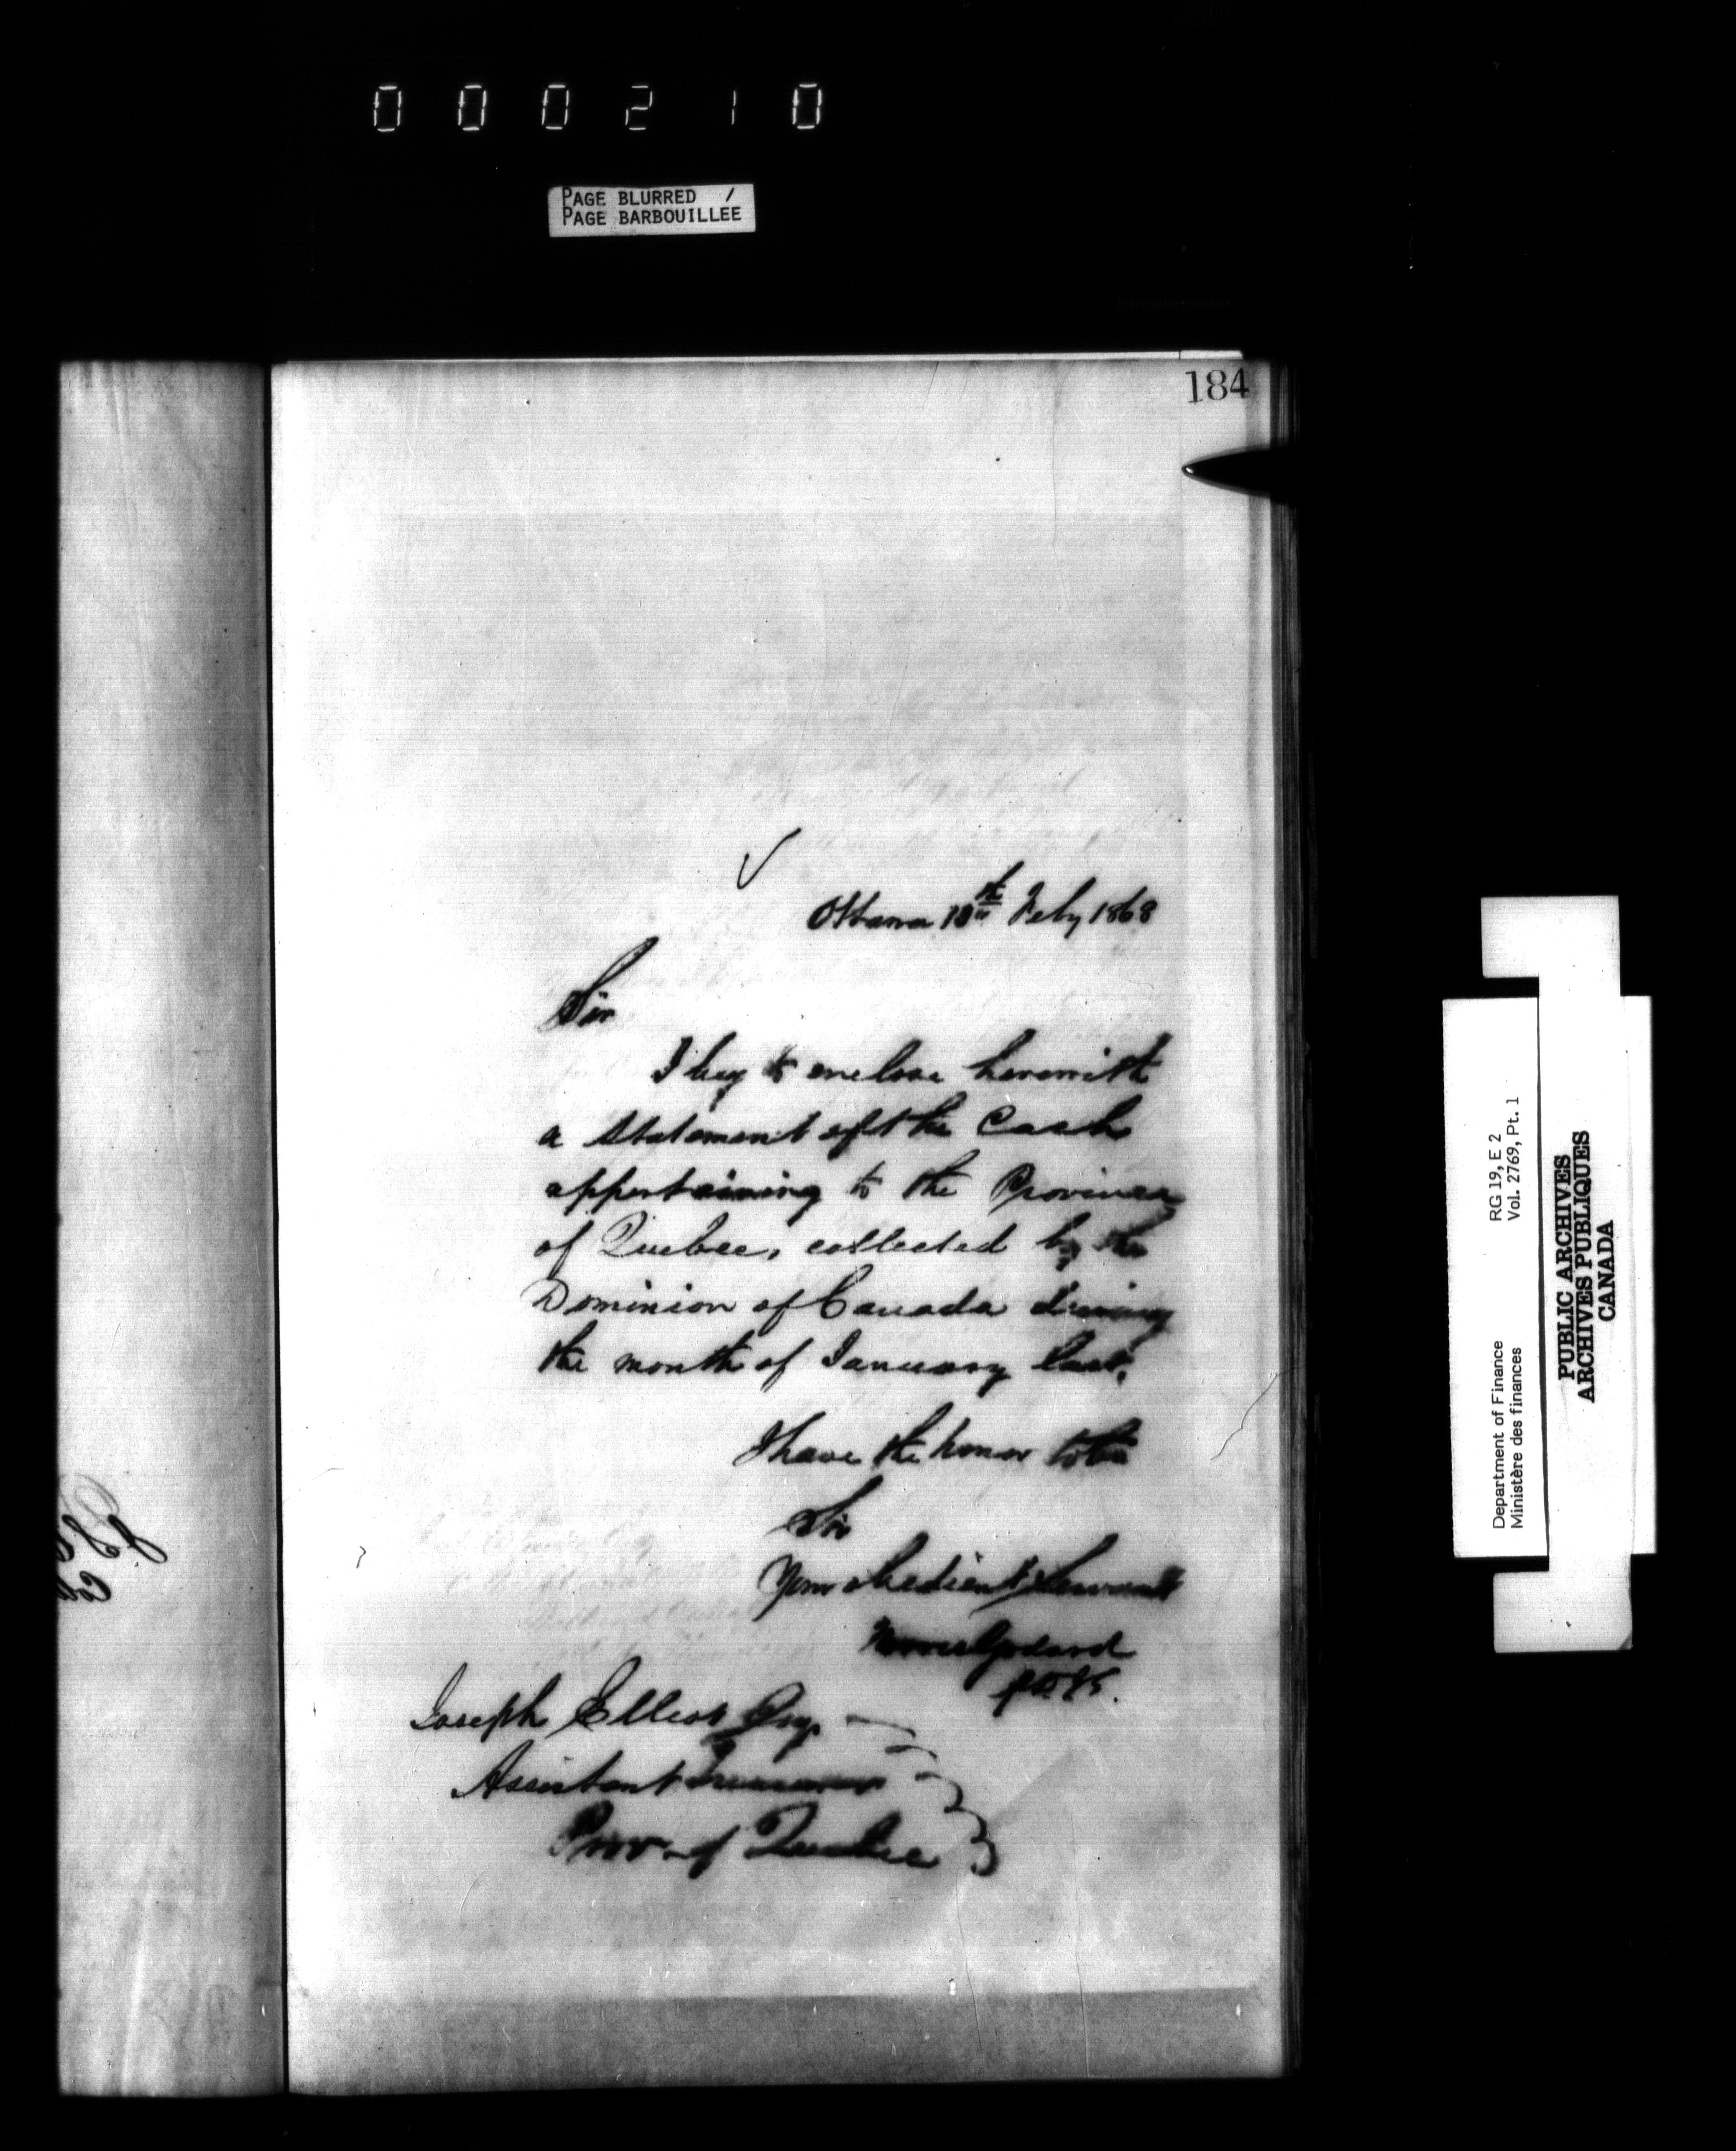 000210
PAGE BLURRED /
PAGE BARBOUILLEE
184
Ottawa 18th Feby 1868
Sir
I beg to enclose herewith
a Statement of the Cash
appertaining to the Province
of Quebec, collected by the
Dominion of Canada during
the month of January last.
I have the honor to be
Sir
Your obedient Servant
Godard
Joseph Elliot Esq.
Assistant Treasurer
Prov. of Quebec
Department of Finance
Ministère des finances
RG 19, E 2
Vol. 2769, Pt. 1
PUBLIC ARCHIVES
ARCHIVES PUBLIQUES
CANADA